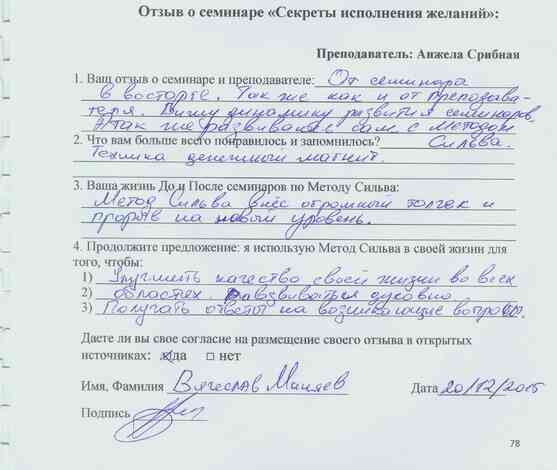 Отзыв о семинаре «Секреты исполнения желаний»:
Преподаватель: Анжела Срибная
1. Ваш отзыв о семинаре и преподавателе: От семинара
в восторге. Так же как и от преподава-
теля. Вижу динамику развития семинаров,
а так же развиваюсь сам с Методом
2. Что вам больше всего понравилось и запомнилось? Сильва.
Техника денежный магнит.
3. Ваша жизнь До и После семинаров по Методу Сильва:
Метод Сильва внёс огромный толчок и
прорыв на новый уровень.
4. Продолжите предложение: я использую Метод Сильва в своей жизни для
того, чтобы:
1) Улучшить качество своей жизни во всех
2) областях. Развиваться духовно
3) Получать ответы на возникающие вопросы.
Даете ли вы свое согласие на размещение своего отзыва в открытых
источниках: да □ нет
Имя, Фамилия Вячеслав Дата 20/12/2015
Подпись
78